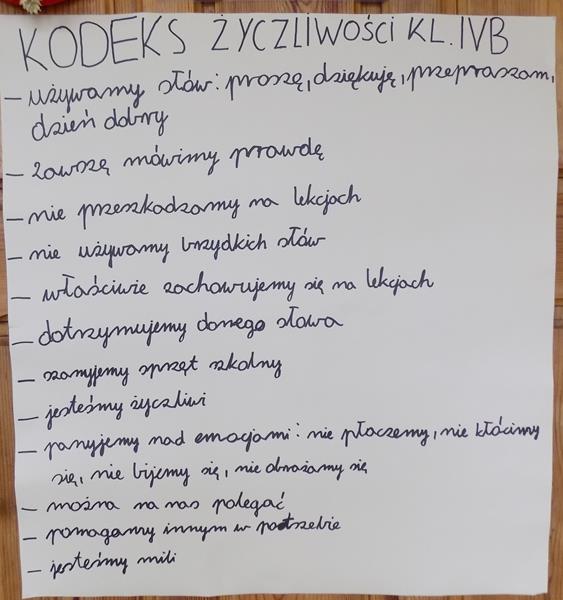 KODEKS ŻYCZLIWOŚCI KL. IVB
– używamy słów: proszę, dziękuję, przepraszam,
dzień dobry
– zawszę mówimy prawdę
– nie przeszkadzamy na lekcjach
– nie używamy brzydkich słów
– właściwie zachowujemy się na lekcjach
– dotrzymujemy danego słowa
– szanujemy sprzęt szkolny
– jesteśmy życzliwi
– panujemy nad emocjami: nie płaczemy, nie kłócimy
się, nie bijemy się, nie obrażamy się
– można na nas polegać
– pomagamy innym w potrzebie
– jesteśmy mili